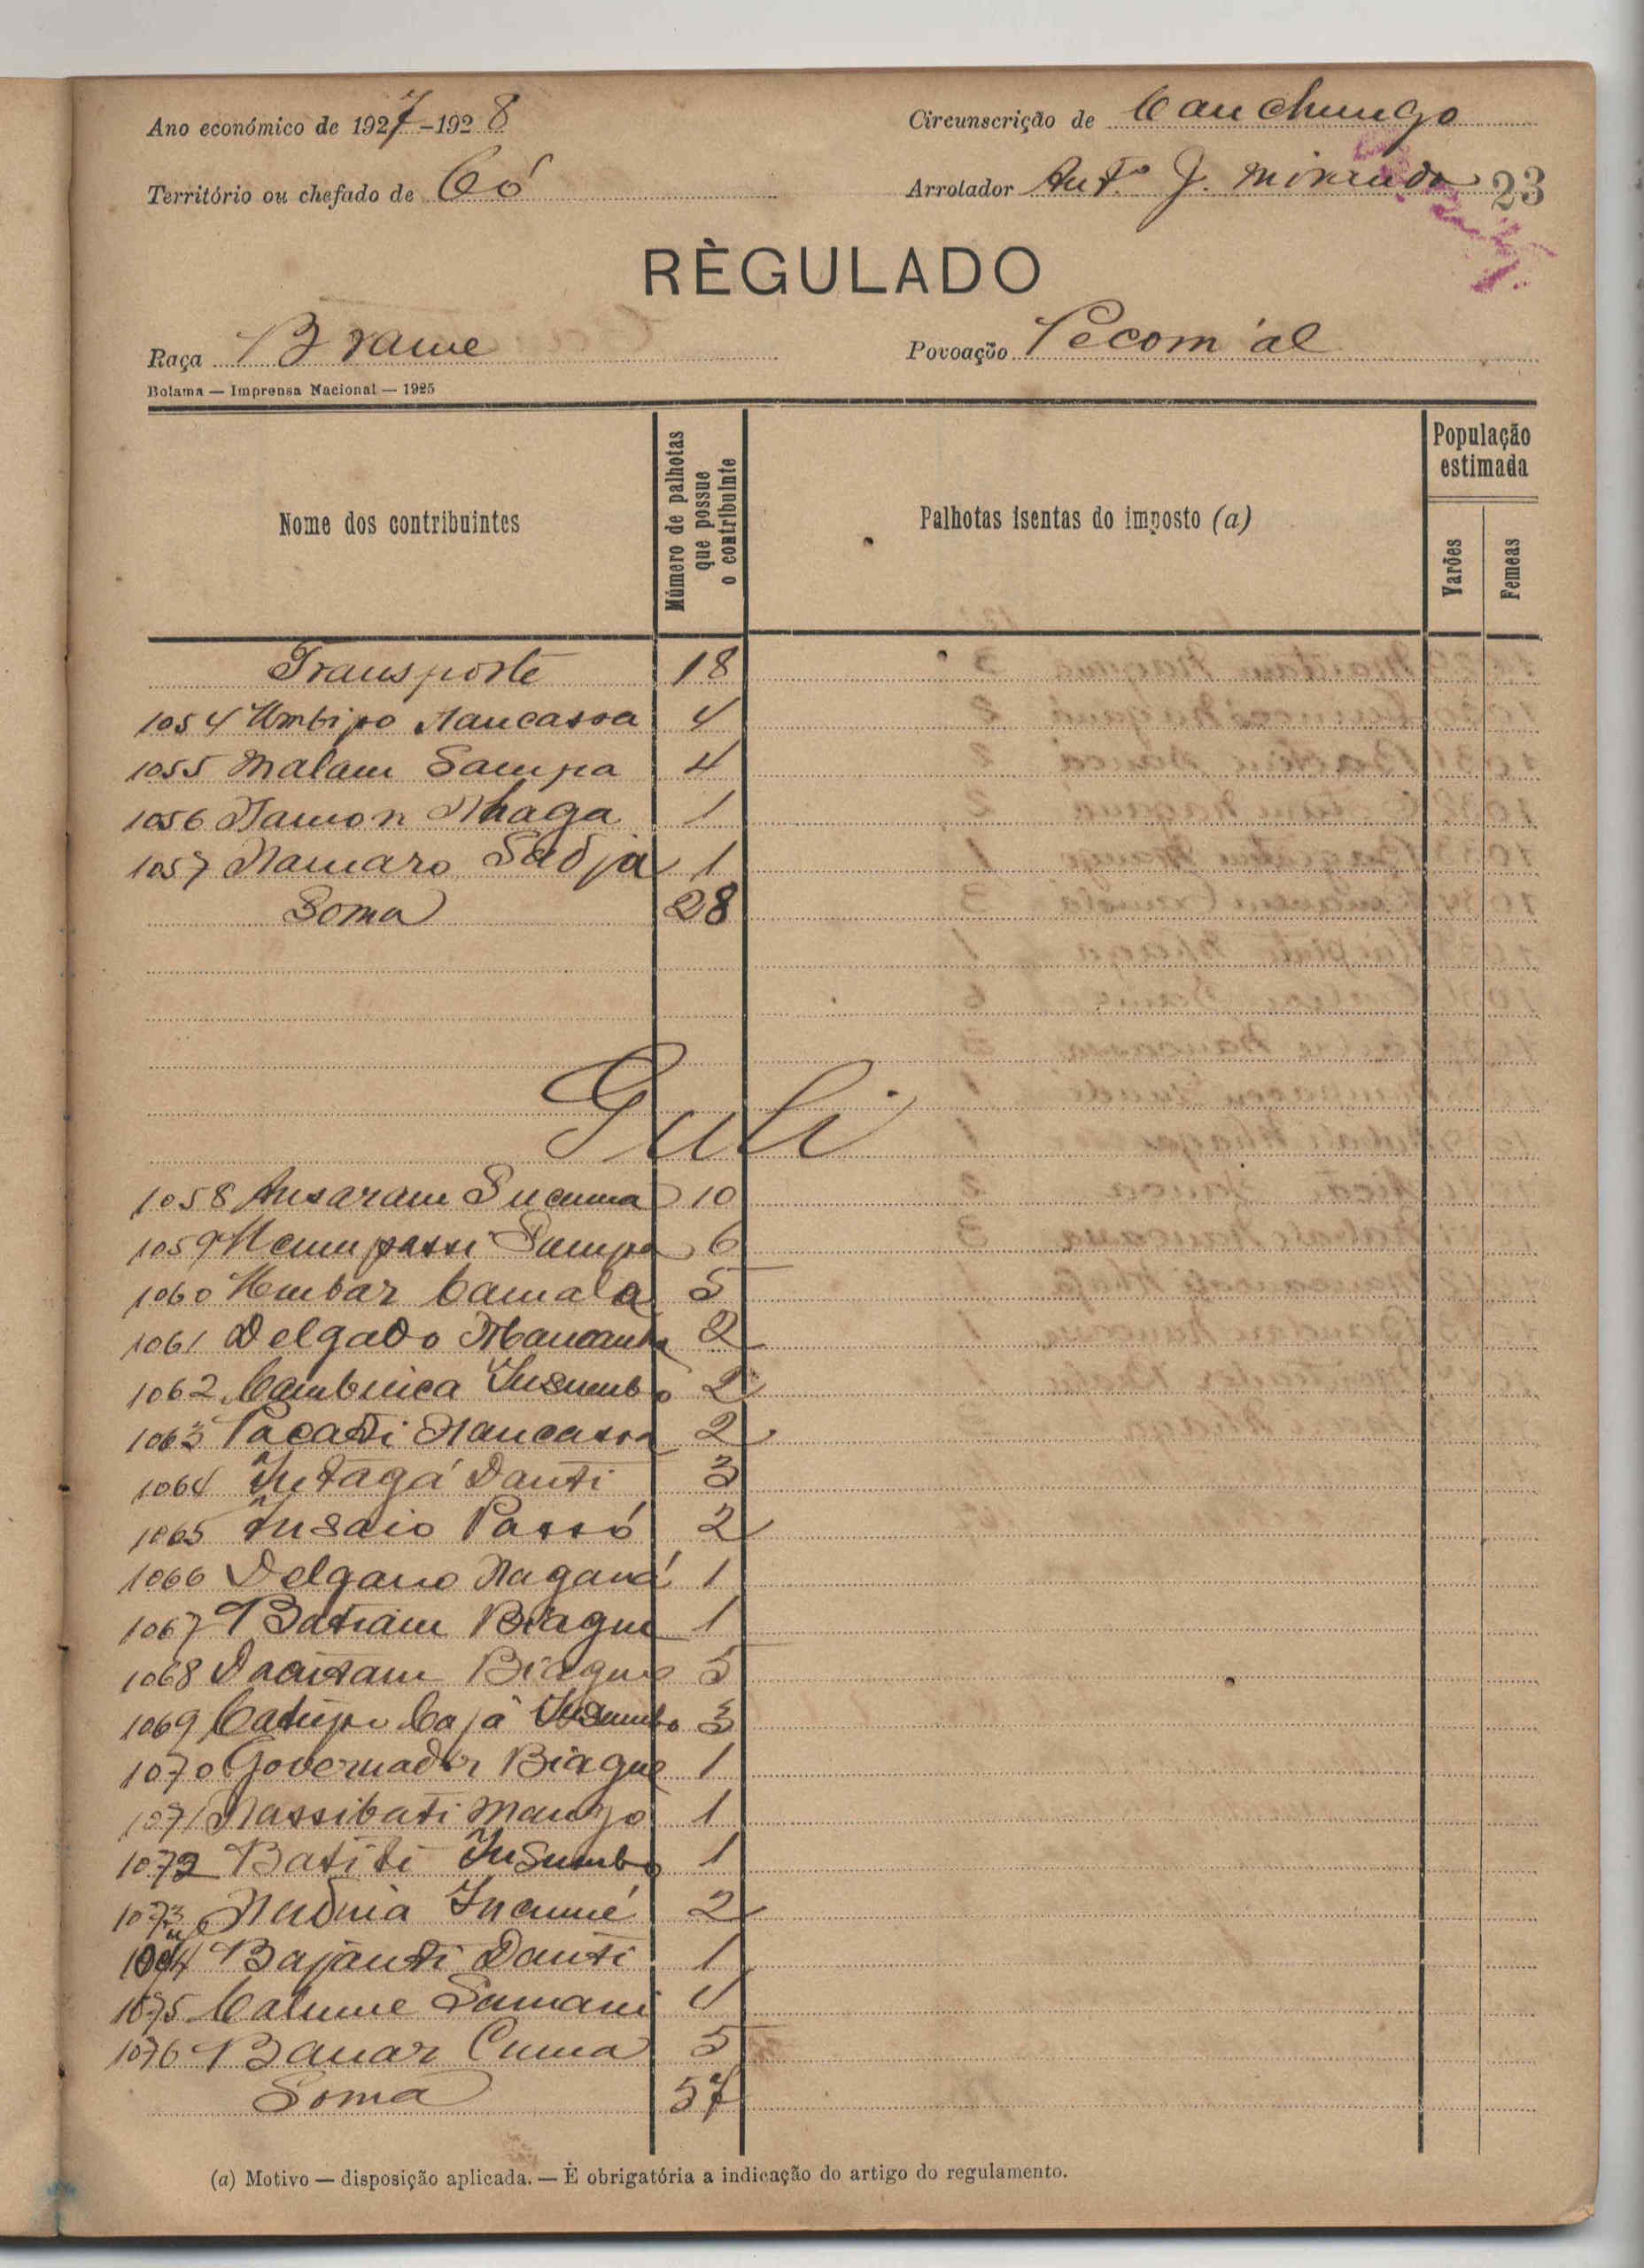 Ano económico de 1927-1928
Circunscrição de Canchungo
Território ou chefado de Có
Arrolador Antº J. Miranda 23
RÈGULADO
Raça Brame
Povoação Pecom'al
Bolama — Imprensa Nacional — 1925
Nome dos contribuintes
Número de palhotas que possue o contribuinte
Palhotas isentas do imposto (a)
População estimada
Varões
Femeas
Transporte 18
1054 Umbipo Nancassa 4
1055 Malam Sampa 4
1056 Namon Nhaga 1
1057 Namaro Sadja 1
Soma 28
Guli
1058 Ansaram 10
1059 Sampa 6
1060 Camala 5
1061 Delgado 2
1062 Insumbo 2
1063 Pacati Nancassa 2
1064 Intagá Danti 3
1065 Insaio Passó 2
1066 Delgano Naganá 1
1067 Batiam Biague 1
1068 Biague 5
1069 Catupe Cajá Insumbo 3
1070 Governador Biague 1
1071 Nassibati Mango 1
1072 Batiti Insumbo 1
1073 Incumé 2
1074 Bajanti Danti 1
1075 Catume 4
1076 Banar Cuma 5
Soma 57
(a) Motivo — disposição aplicada. — É obrigatória a indicação do artigo do regulamento.